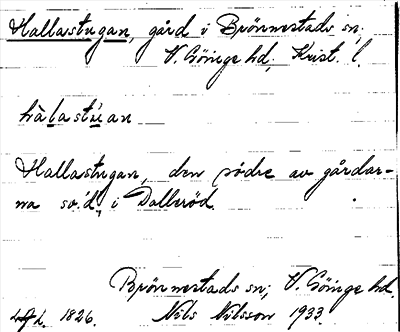 Hallastugan, gård i Brönnestads sn,
V. Göinge hd, Krist. l.
hàlastúan
Hallastugan, den södre av gårdar-
na so. d., i Dalleröd.
Brönnestads sn, V. Göinge hd.
1826. Nils Nilsson 1933.